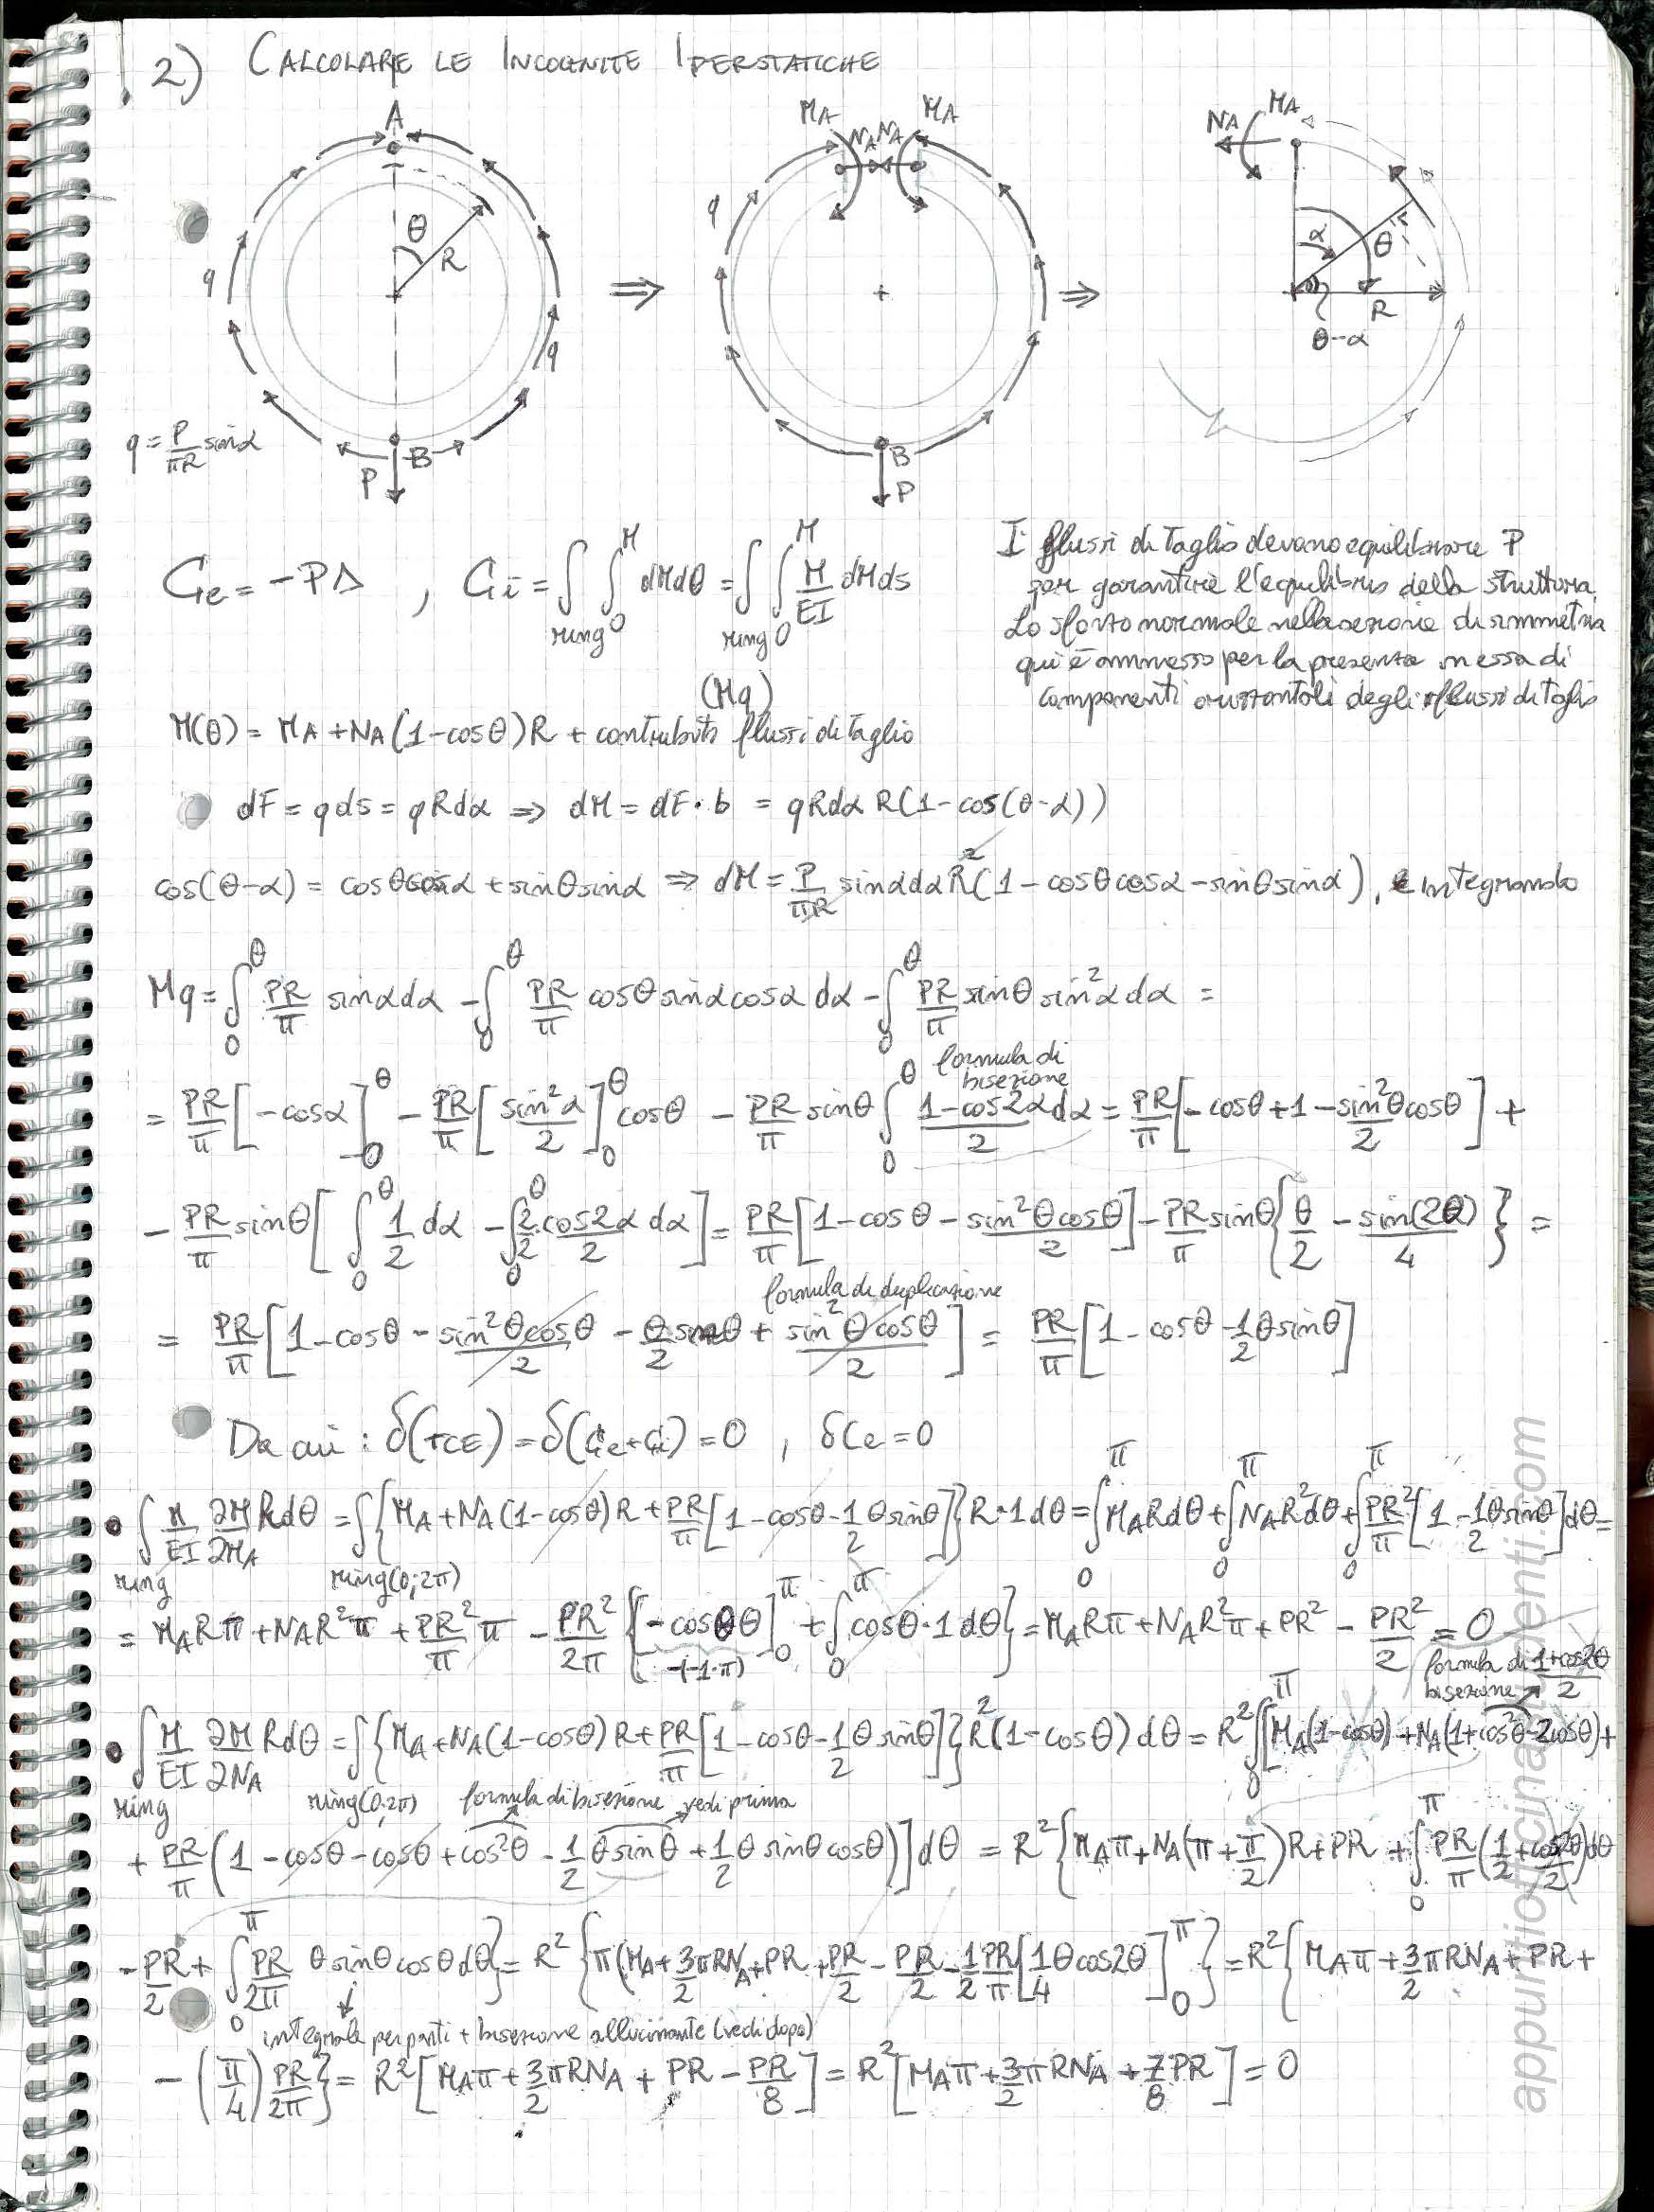 2) CALCOLARE LE INCOGNITE IPERSTATICHE
A
θ
R
q
q
B
P
q = P/(πR) sinα
⇒
MA MA
NA NA
q
B
P
⇒
NA MA
α
θ
R
θ-α
I flussi di taglio devono equilibrare P
per garantire l'equilibrio della struttura.
Lo sforzo normale nella sezione di simmetria
qui è ammesso per la presenza in essa di
componenti orizzontali degli flussi di taglio
Ce = -PΔ , Ci = ∫ring ∫₀^M dMdθ = ∫ring ∫₀^M M/EI dMds
(Mq)
M(θ) = MA + NA(1-cosθ)R + contributo flussi di taglio
dF = qds = qRdα ⇒ dM = dF·b = qRdα R(1-cos(θ-α))
cos(θ-α) = cosθcosα + sinθsinα ⇒ dM = P/(πR) sinαdαR²(1-cosθcosα-sinθsinα), e integrando
Mq = ∫₀^θ PR/π sinαdα - ∫₀^θ PR/π cosθsinαcosα dα - ∫₀^θ PR/π sinθ sin²α dα =
formula di bisezione
= PR/π [-cosα]₀^θ - PR/π [sin²α/2]₀^θ cosθ - PR/π sinθ ∫₀^θ (1-cos2α)/2 dα = PR/π [-cosθ+1-sin²θ/2 cosθ] +
- PR/π sinθ [∫₀^θ 1/2 dα - ∫₀^θ 2/2 cos2α/2 dα] = PR/π [1-cosθ-sin²θcosθ/2] - PR/π sinθ {θ/2 - sin(2θ)/4} =
formula di duplicazione
= PR/π [1-cosθ - sin²θcosθ/2 - θ/2 sinθ + sin²θcosθ/2] = PR/π [1-cosθ-1/2 θsinθ]
Da cui : δ(TCE) = δ(Ce+Ci) = 0 , δCe = 0
• ∫ring M/EI ∂M/∂MA Rdθ = ∫ring(0;2π) {MA+NA(1-cosθ)R+PR/π[1-cosθ-1/2 θsinθ]}R·1dθ = ∫₀^π MARdθ+∫₀^π NAR²dθ+∫₀^π PR²/π[1-1/2 θsinθ]dθ=
= MARπ+NAR²π+PR²/π π - PR²/2π {[-cosθθ]₀^π + ∫₀^π cosθ·1dθ} = MARπ+NAR²π+PR²-PR²/2 = 0
-(-1·π)
formula di bisezione (1+cos2θ)/2
• ∫ring M/EI ∂M/∂NA Rdθ = ∫ring(0.2π) {MA+NA(1-cosθ)R+PR/π[1-cosθ-1/2 θsinθ]}R²(1-cosθ)dθ = R²∫₀^π[MA(1-cosθ)+NA(1+cos²θ-2cosθ)+
formula di bisezione vedi prima
+ PR/π (1-cosθ-cosθ+cos²θ-1/2 θsinθ+1/2 θsinθcosθ)]dθ = R²{MAπ+NA(π+π/2)R+PR+∫₀^π PR/π(1/2+cos2θ/2)dθ
- PR/2 + ∫₀^π PR/2π θsinθcosθdθ} = R²{π(MA+3/2πRNA+PR+PR/2-PR/2-1/2 1/2 PR/π[1/4 θcos2θ]₀^π} = R²{MAπ+3/2πRNA+PR+
integrale per parti + bisezione allucinante (vedi dopo)
- (π/4) PR/2π} = R²[MAπ+3/2πRNA+PR-PR/8] = R²[MAπ+3/2πRNA+7/8PR] = 0
appuntiofficinastudenti.com